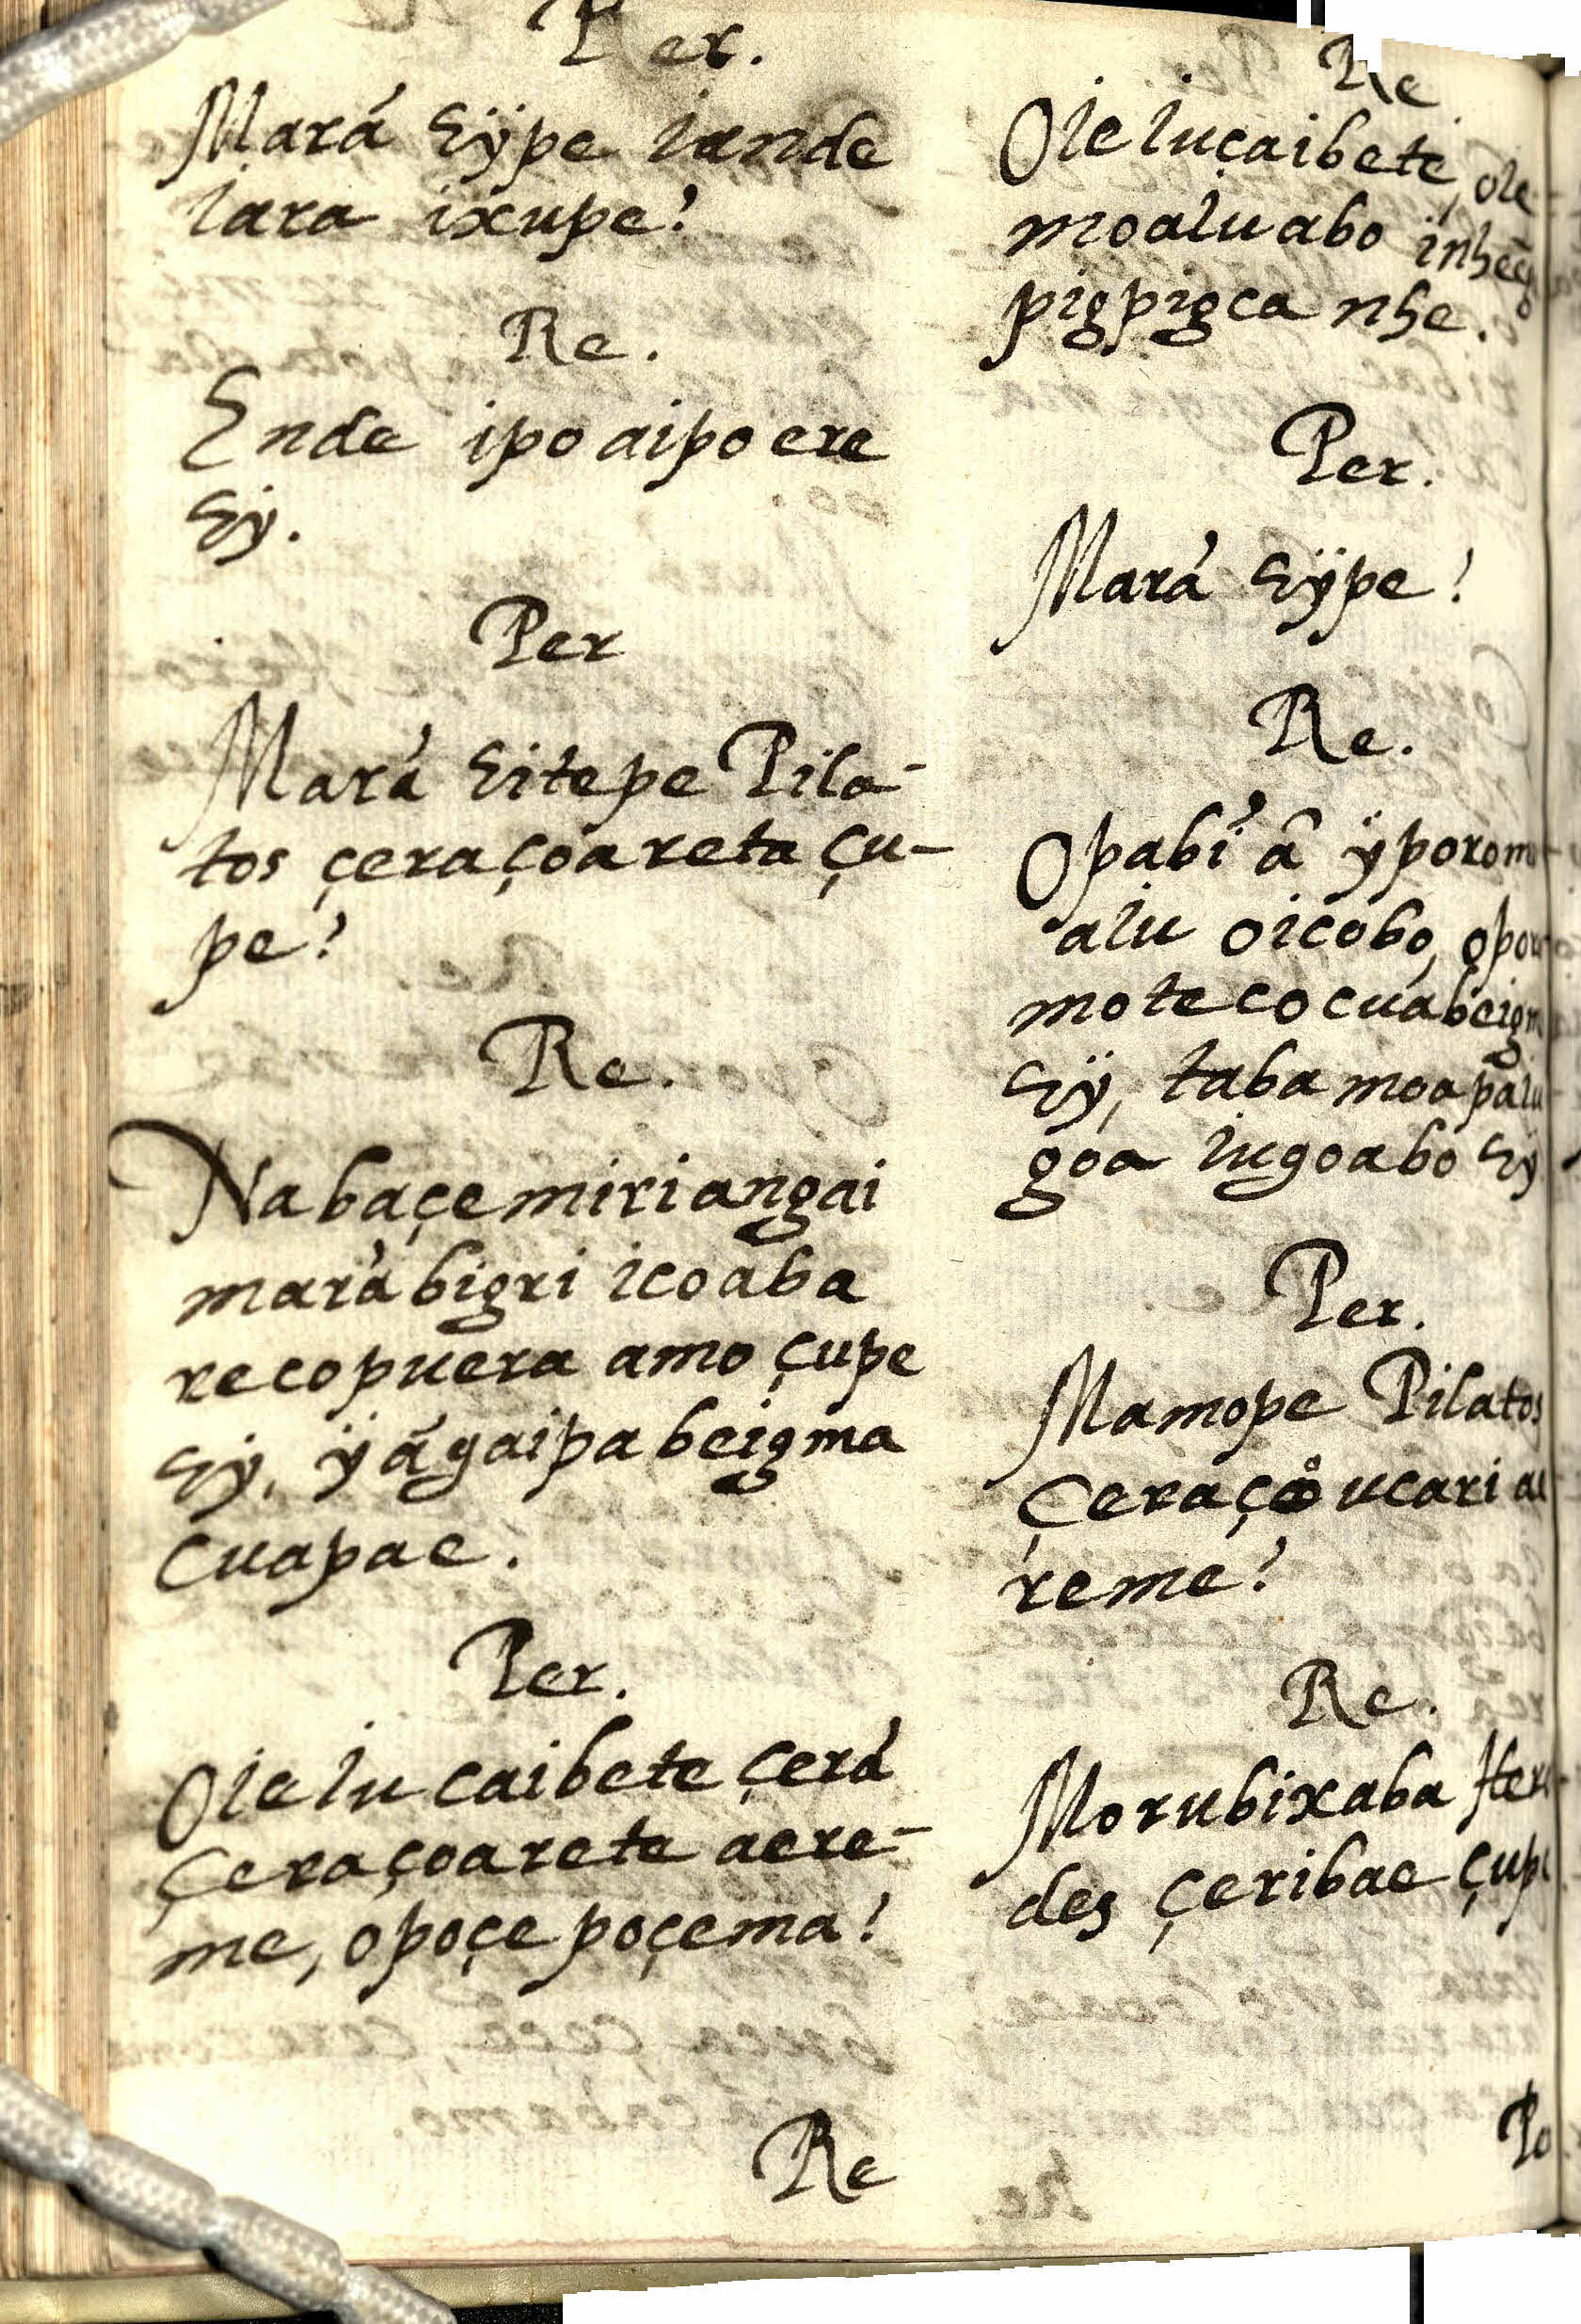 Per.
Mará eÿpe iande
iara ixupe?
Re.
Ende ipo aipo ere
eÿ.
Per
Mará eitepe Pila-
tos çeraçoareta çu-
pe?
Re.
Nabaçemiriangai
marábigri icoaba
recopuera amo çupe
eÿ, ÿ ágaipabeigma
cuapae.
Per.
Oieiucaibete çerá
Çeraçoarete aere-
me, opoçepoçema?
Re
Re
Oieiuçaibete, oie
moaiuabo
pigpigca nhe.
Per.
Mará eÿpe?
Re.
Opabí â ÿporom
aiu oicobo,
motecocuabeigm
eÿ, taba moapaiu
goa iugoabo eÿ
Per.
Mamope Pilatos
Çeraço ucari
reme?
Re.
Morubixaba Hero
des çeribae çupe